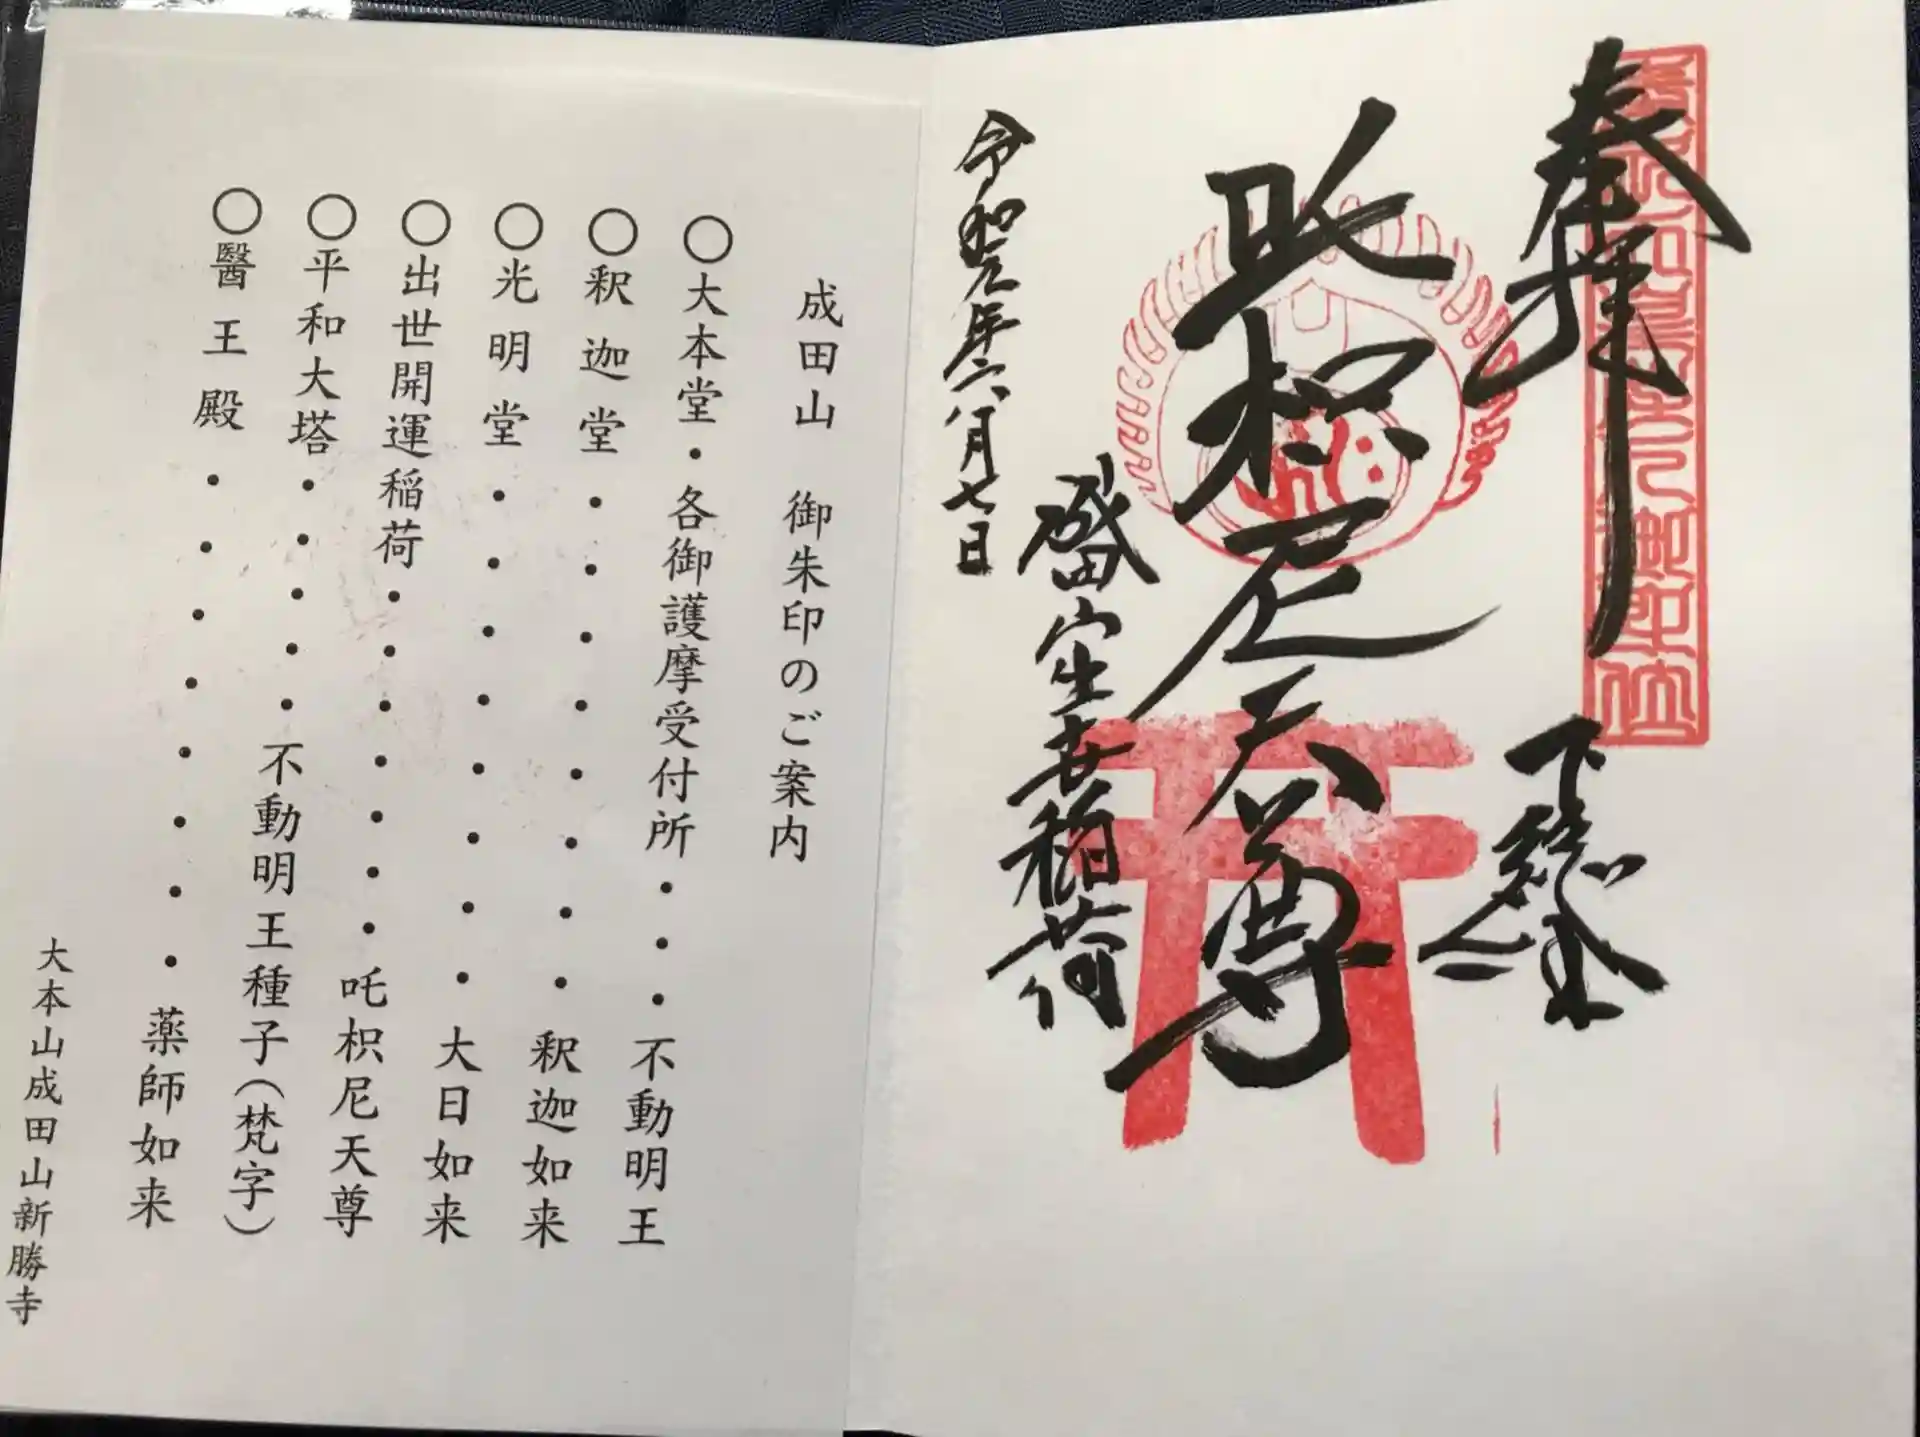 奉拝
下総公津
吒枳尼天尊
成田山出世稲荷
令和元年六月七日
成田山 御朱印のご案内
○大本堂・各御護摩受付所・・・不動明王
○釈迦堂・・・・・・・・釈迦如来
○光明堂・・・・・・・・大日如来
○出世開運稲荷・・・・・・・吒枳尼天尊
○平和大塔・・・・・不動明王種子(梵字)
○醫王殿・・・・・・・・薬師如来
大本山成田山新勝寺